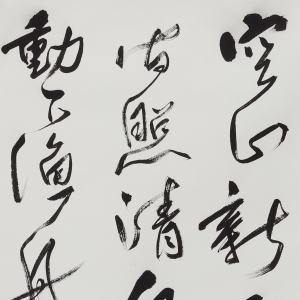 空山新
間照清
動下漁舟